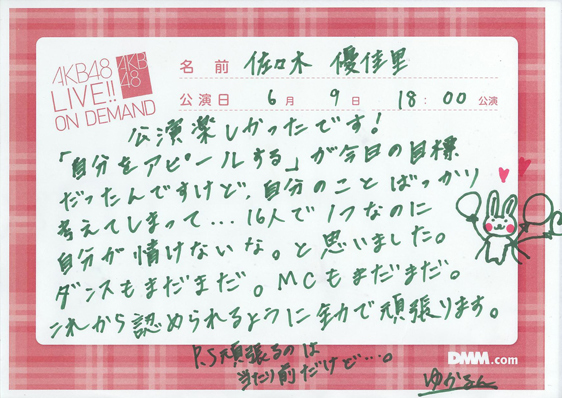 AKB48
LIVE!!
ON DEMAND
AKB
48
名前 佐々木 優佳里
公演日 6月 9日 18:00 公演
公演楽しかったです!
「自分をアピールする」が今日の目標
だったんですけど、自分のことばっかり
考えてしまって...16人で1つなのに
自分が情けないな。と思いました。
ダンスもまだまだ。MCもまだまだ。
これから認められるように全力で頑張ります。
P.S頑張るのは
当たり前だけど...。
DMM.com
ゆかるん